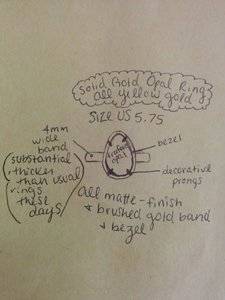 Solid Gold Opal Ring
all yellow gold
SIZE US 5.75
4mm
wide
band
(substantial
thicker
than usual
rings
these
days)
opal
bezel
decorative
prongs
all matte-finish
& brushed gold band
& bezel